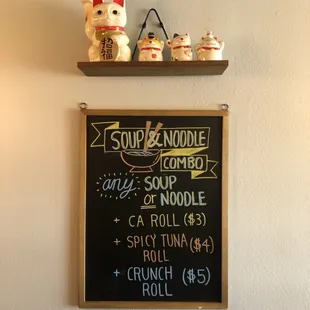 SOUP & NOODLE
COMBO
any SOUP
or NOODLE
+ CA ROLL ($3)
+ SPICY TUNA ($4)
ROLL
+ CRUNCH ($5)
ROLL